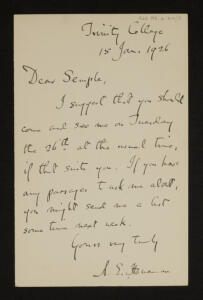 Trinity College
15 Jan. 1926
Dear Semple,
I suggest that you should
come and see me on Tuesday
the 26th at the usual time,
if that suits you. If you have
any passages to ask me about,
you might send me a list
some time next week.
Yours very truly
A. E. Housman